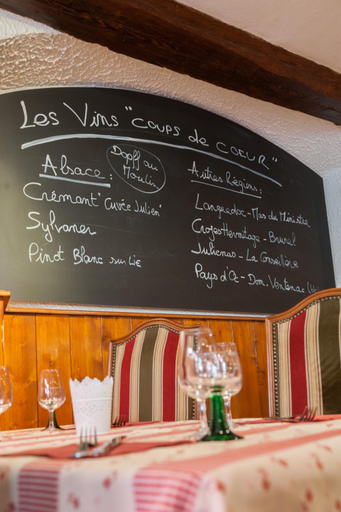 Les Vins "coups de cœur"
Alsace:
Dopff au
Moulin
Crémant "Cuvée Julien"
Sylvaner
Pinot Blanc sur Lie
Autres Régions:
Languedoc - Mas du Ministre
Crozes Hermitage - Brunel
Julienas - La
Pays d'Oc - Dom. Ventenac